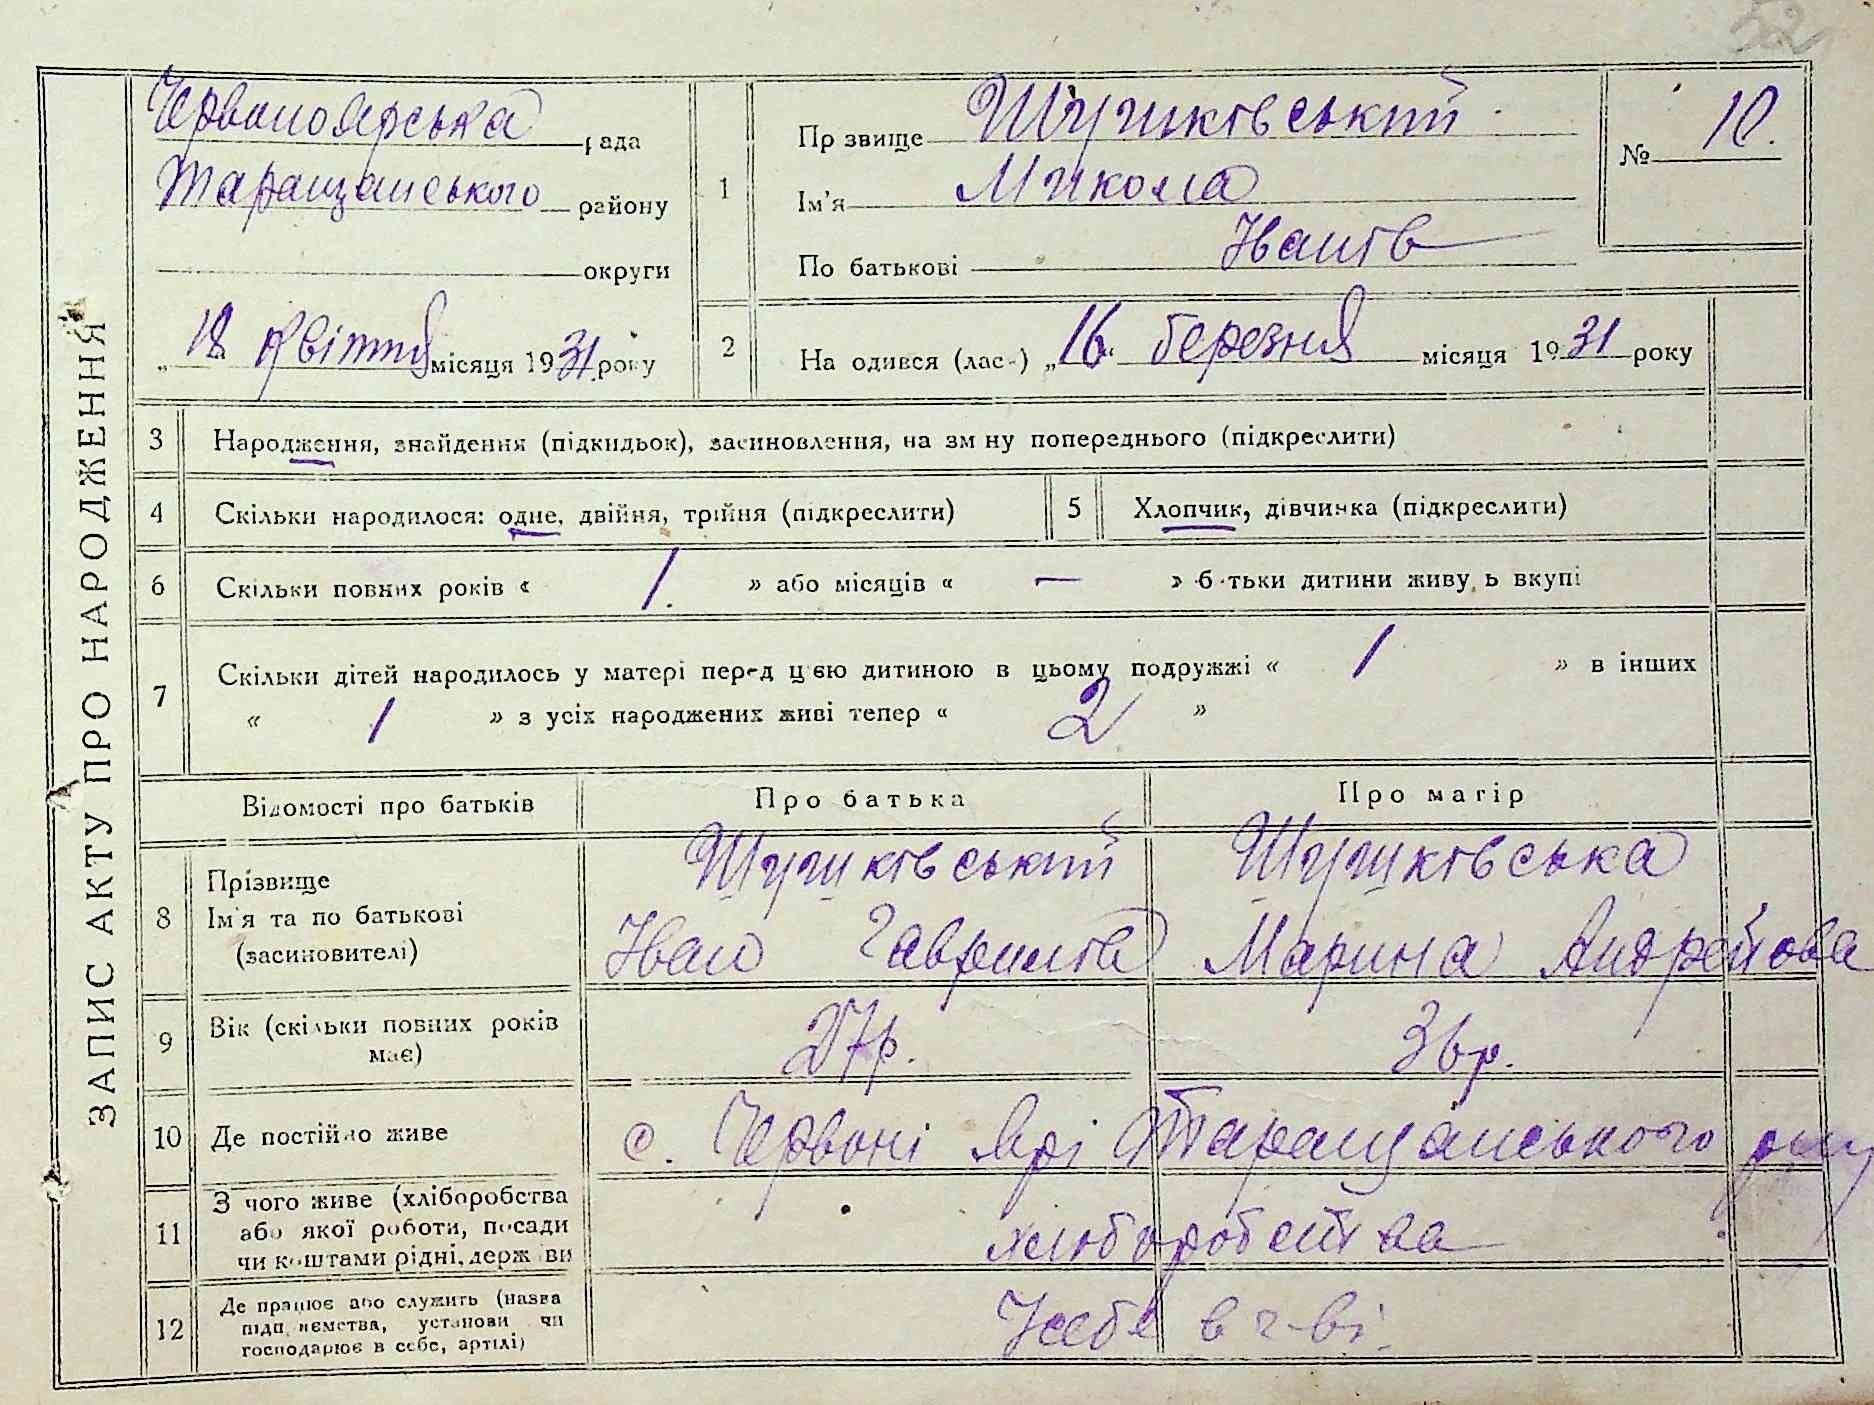 ЗАПИС АКТУ ПРО НАРОДЖЕННЯ
Червоноярська рада
Таращанського району
округи
„18“ Квітня місяця 1931 року
1
Пр звище Шушківський
Ім'я Микола
По батькові Іванів
№ 10.
2
На одився (лас-) „16“ березня місяця 1931 року
3 Народження, знайдення (підкидьок), засиновлення, на зм ну попереднього (підкреслити)
4 Скільки народилося: одне, двійня, трійня (підкреслити)
5 Хлопчик, дівчинка (підкреслити)
6 Скільки повних років « 1. » або місяців « — » б тьки дитини живу ь вкупі
7 Скільки дітей народилось у матері перед цією дитиною в цьому подружжі « 1 » в інших
« 1 » з усіх народжених живі тепер « 2 »
Відомості про батьків Про батька Про матір
8 Прізвище
Ім'я та по батькові
(засиновителі)
Шушківський
Іван Гаврилів
Шушківська
Марина Андрейова
9 Вік (скільки повних років
має)
27р.
36р.
10 Де постійно живе с. Червоні Ярі Таращанського р-ну
11 З чого живе (хліборобства
або якої роботи, посади
чи коштами рідні, держ ви
хліборобства
12 Де працює або служить (назва
підп иємства, установи чи
господарює в себе, артілі)
У себе в г-ві.